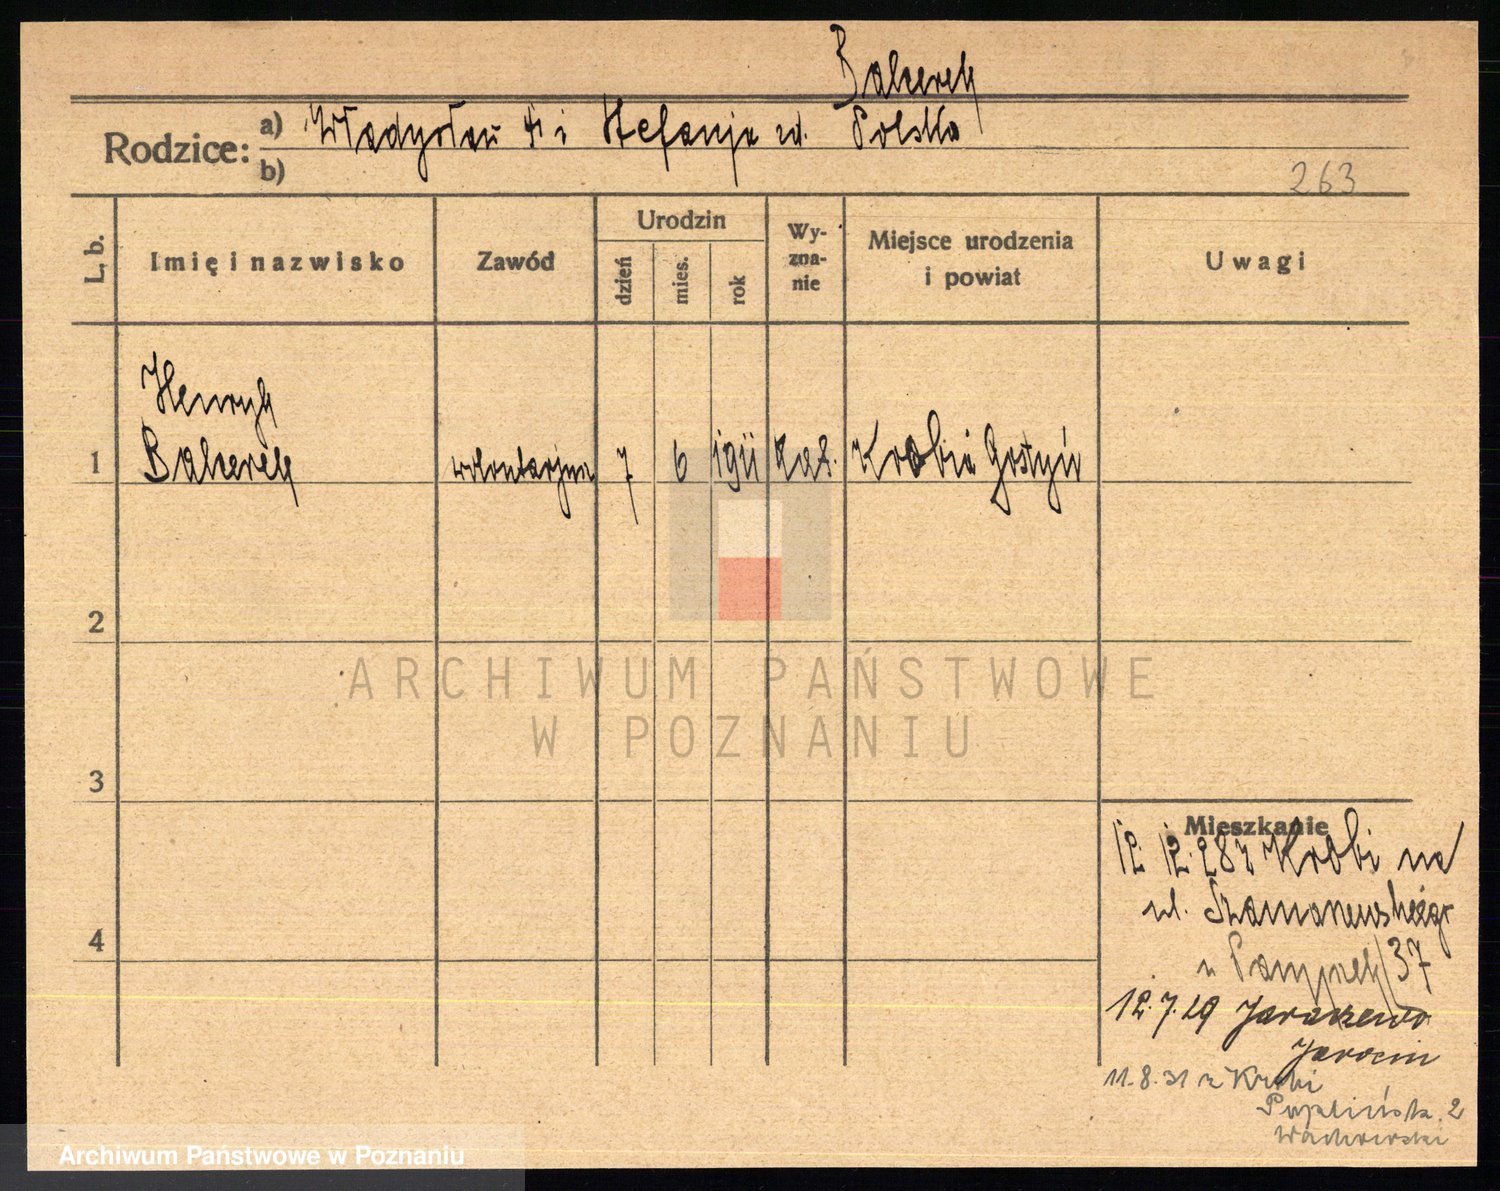 Balcerek
Rodzice: a) Władysław i Stefanja ur. Polska
b)
263
L. b. Imię i nazwisko Zawód Urodzin dzień mies. rok Wy-zna-nie Miejsce urodzenia i powiat Uwagi
Henryk
1 Balcerek 7 6 1911 kat. Krobia Gostyń
2
ARCHIWUM PAŃSTWOWE
W POZNANIU
3
Mieszkanie
12. 12. 28 z Krobi na
ul.
4
37
12.7.29 Jaraczewo
Jarocin
11.8.31 z Krobi
2
Archiwum Państwowe w Poznaniu